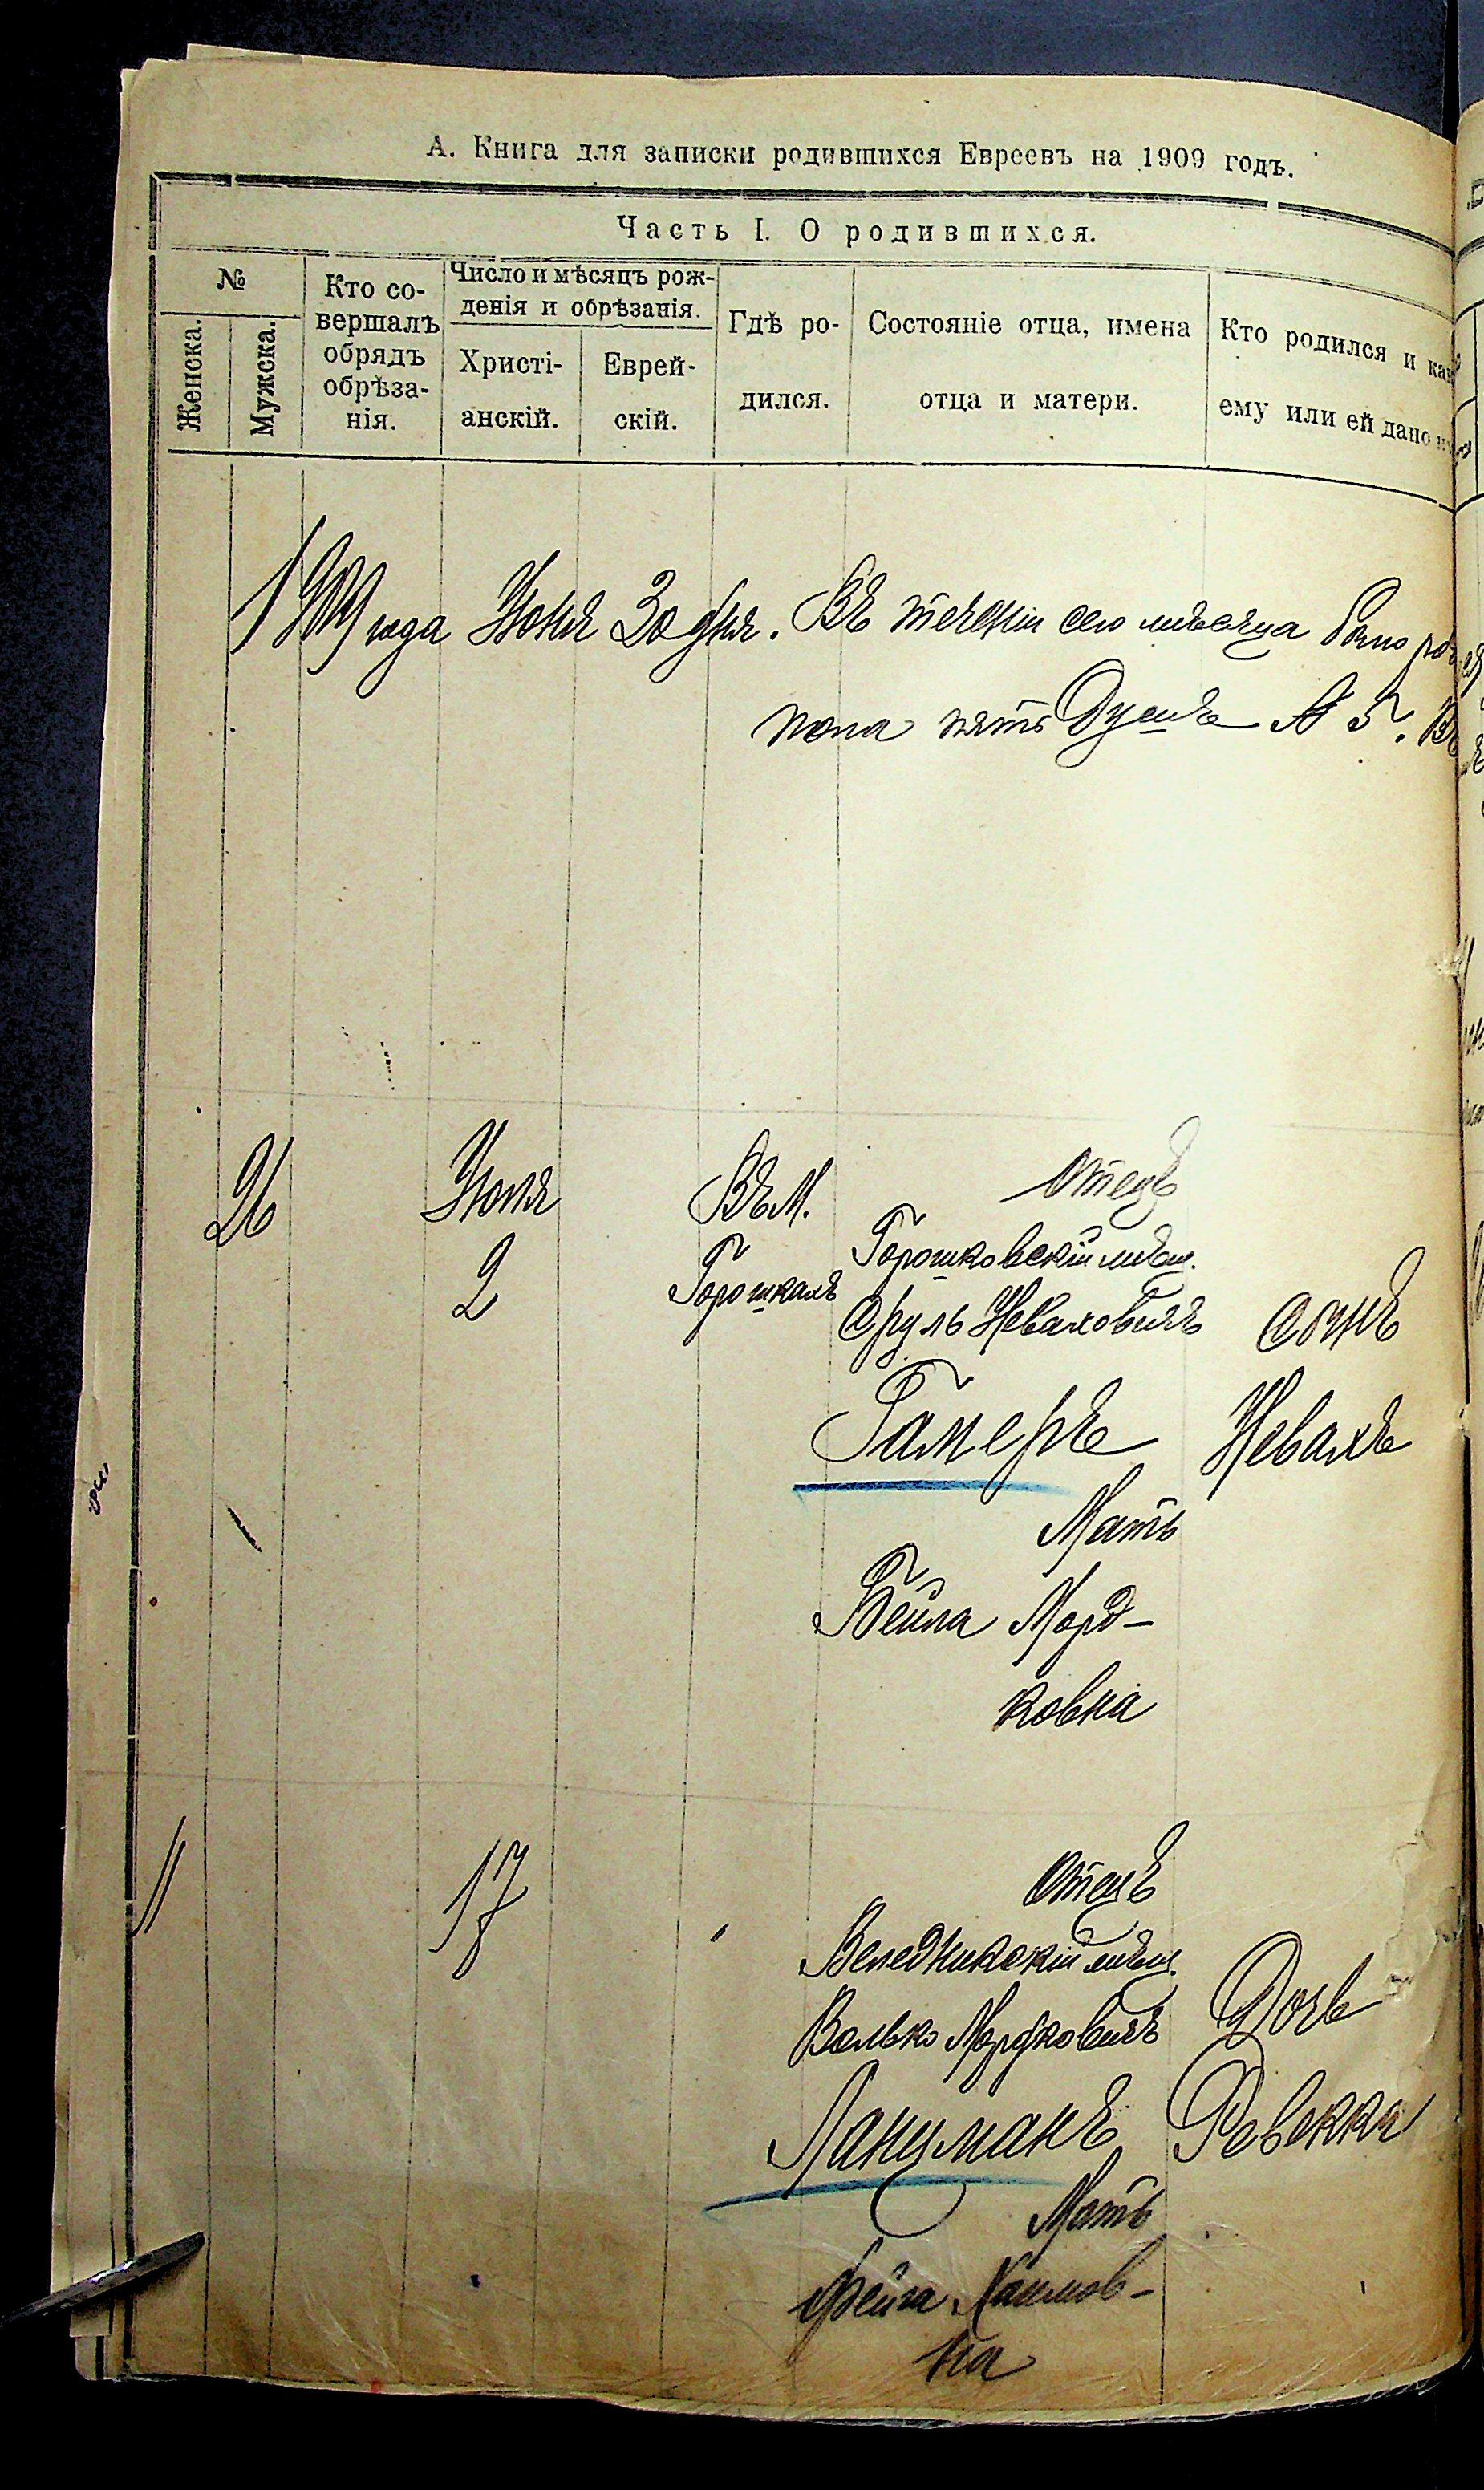 А. Книга для записки родившихся Евреевъ на 1909 годъ.
Часть I. О родившихся.
№
Женска.
Мужска.
Кто со-
вершалъ
обрядъ
обрѣза-
нія.
Число и мѣсяцъ рож-
денія и обрѣзанія.
Христі-
анскій.
Еврей-
скій.
Гдѣ ро-
дился.
Состояніе отца, имена
отца и матери.
Кто родился и как
ему или ей дано
1909 года Іюня 30 дня. Въ теченіи сего мѣсяца было
пола пять душъ № 5. Въ
26
Іюля
2
Въ М.
Горошкахъ
Отецъ
Горошковскій мѣщ.
Сруль Невахович
Гамеръ
Мать
Бейла Морд-
ковна
сынъ
Невахъ
11
17
Отецъ
Веледникскій мѣщ.
Волько Мордковичъ
Ланцманъ
Мать
Фейга Хаимов-
на
Дочь
Ревекка